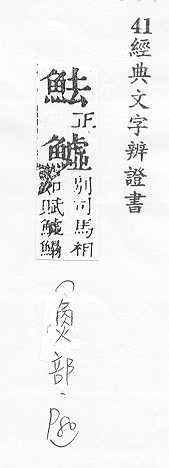 41 經典文字辨證書
魼正
鱋別司馬相
如賦鱋鰨
(魚部.P80)